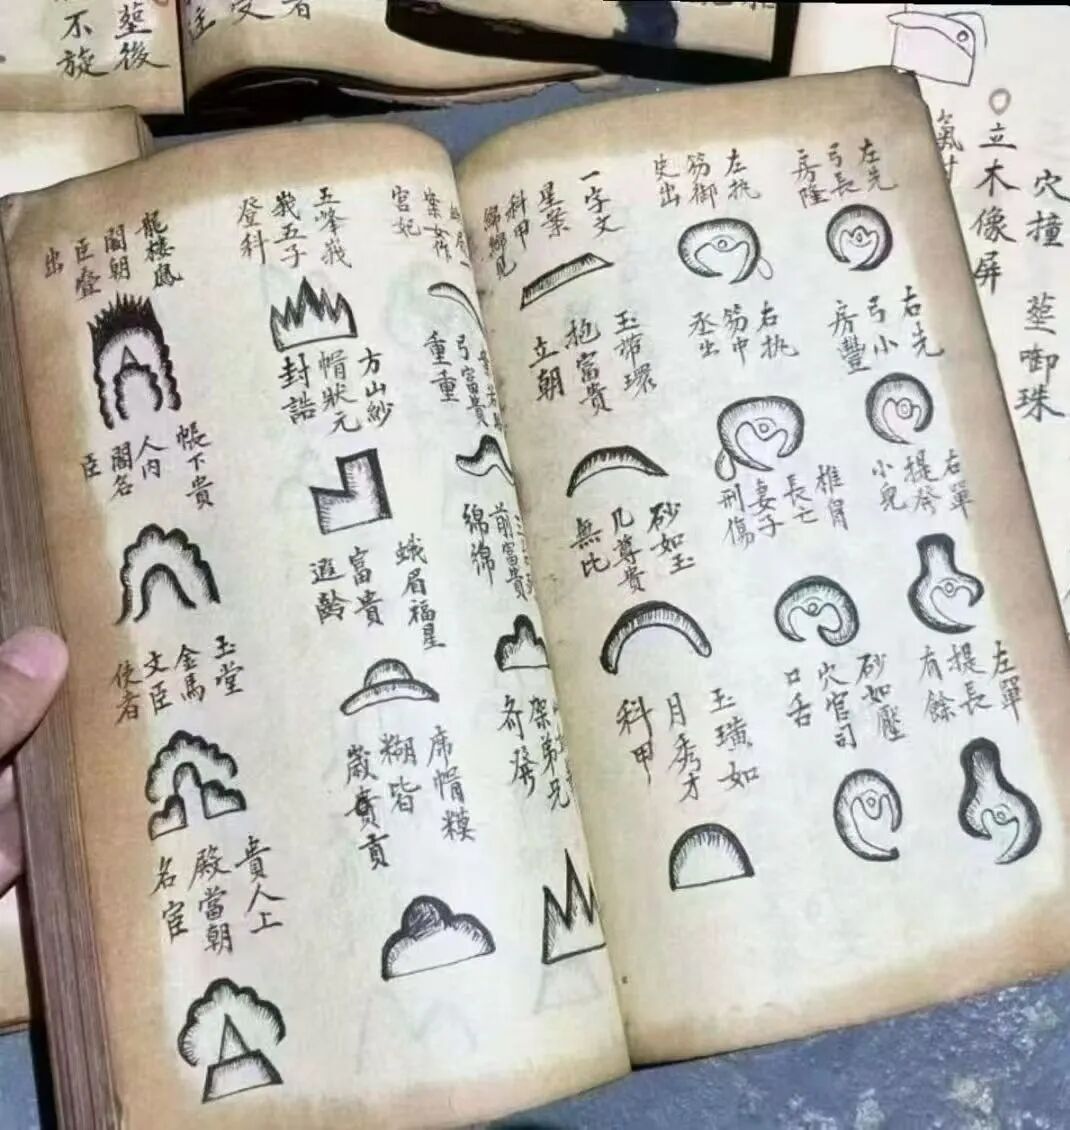 左先
弓長
房隆
右先
弓小
房豐
右單
提發
小兒
左單
提長
有餘
左执
笏御
史出
右执
笏中
丞出
椎胷
長亡
妻子
刑傷
砂如壓
穴官司
口舌
一字文
星案
科甲
玉諦環
抱富貴
立朝
砂如玉
几尊貴
無比
玉璜如
月秀才
科甲
宮妃
弓富貴
重重
前富貴
綿綿
架弟兄
齐發
五峰我
我五子
登科
方山紗
帽狀元
封誥
蛾眉福星
富貴
遐齡
席帽糢
糊皆
歲貴貢
龍樓鳳
閣朝
臣登
出
帳下貴
人内
閣名
臣
玉堂
金馬
文臣
使者
貴人上
殿當朝
名宦
葬後
不旋
立木像屏
穴撞
葬啣珠